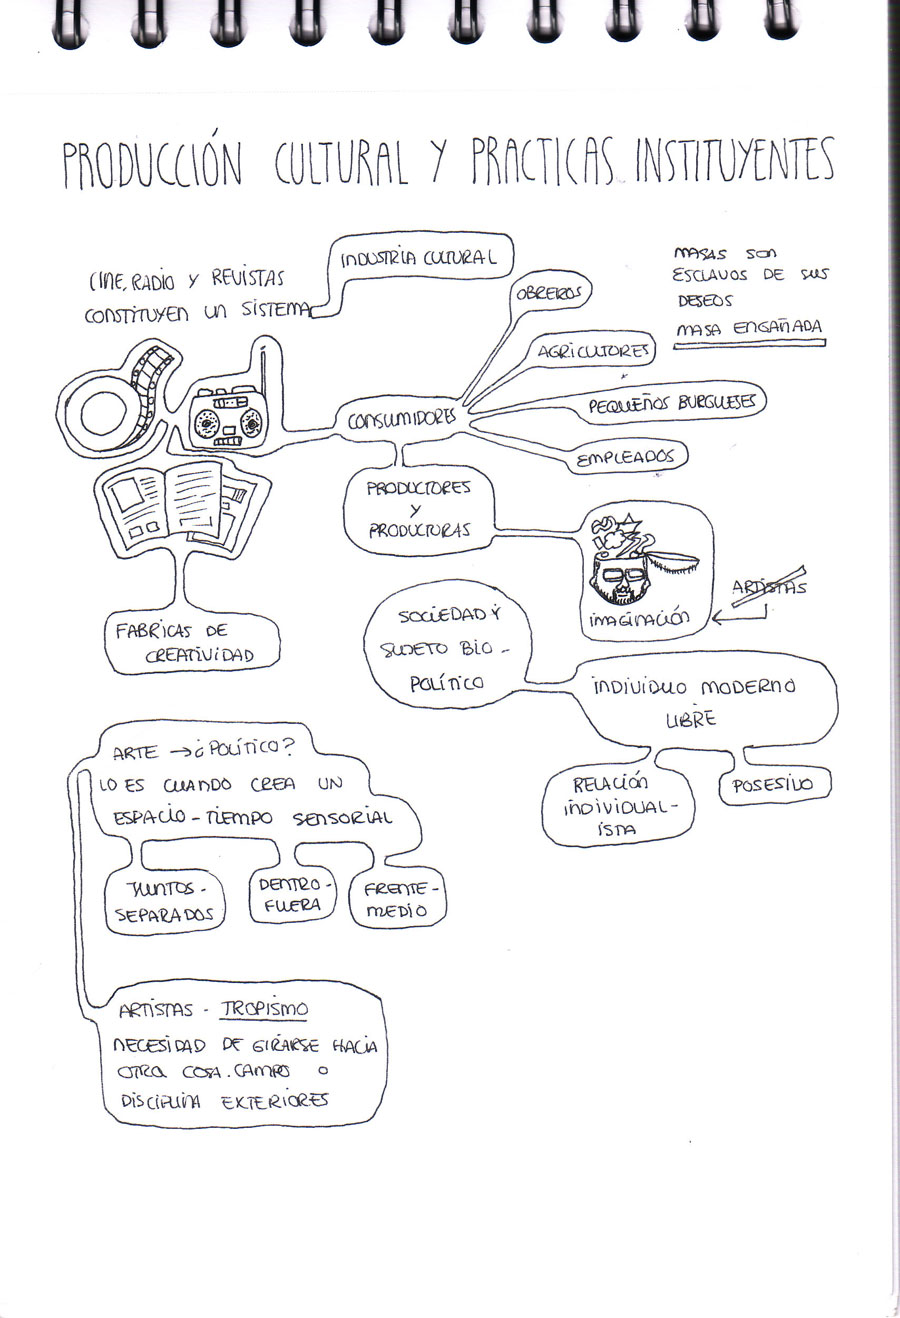 PRODUCCIÓN CULTURAL Y PRACTICAS INSTITUYENTES
INDUSTRIA CULTURAL
CINE, RADIO Y REVISTAS
CONSTITUYEN UN SISTEMA
MASAS SON
ESCLAVOS DE SUS
DESEOS
MASA ENGAÑADA
OBREROS
AGRICULTORES
PEQUEÑOS BURGUESES
EMPLEADOS
CONSUMIDORES
PRODUCTORES
Y
PRODUCTURAS
IMAGINACIÓN
ARTISTAS
FABRICAS DE
CREATIVIDAD
SOCIEDAD Y
SUJETO BIO-
POLÍTICO
INDIVIDUO MODERNO
LIBRE
RELACIÓN
INDIVIDUAL-
ISTA
POSESIVO
ARTE → ¿POLÍTICO?
LO ES CUANDO CREA UN
ESPACIO-TIEMPO SENSORIAL
JUNTOS-
SEPARADOS
DENTRO-
FUERA
FRENTE-
MEDIO
ARTISTAS - TROPISMO
NECESIDAD DE GIRARSE HACIA
OTRA COSA. CAMPO O
DISCIPLINA EXTERIORES